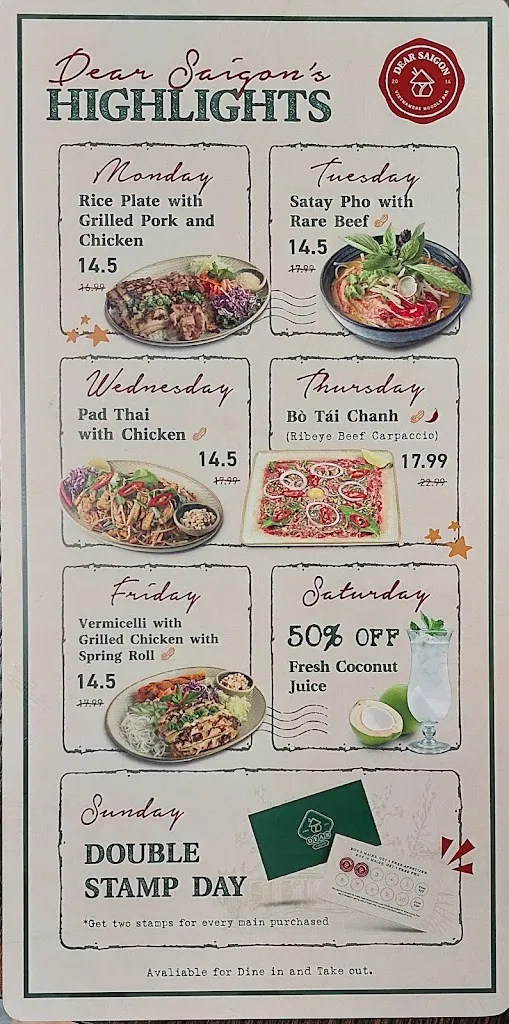 Dear Saigon's
HIGHLIGHTS
DEAR SAIGON
20 14
VIETNAMESE NOODLE BAR
Monday
Rice Plate with
Grilled Pork and
Chicken
14.5
16.99
Tuesday
Satay Pho with
Rare Beef
14.5
17.99
Wednesday
Pad Thai
with Chicken
14.5
17.99
Thursday
Bò Tái Chanh
(Ribeye Beef Carpaccio)
17.99
22.99
Friday
Vermicelli with
Grilled Chicken with
Spring Roll
14.5
17.99
Saturday
50% OFF
Fresh Coconut
Juice
Sunday
DOUBLE
STAMP DAY
*Get two stamps for every main purchased
Avaliable for Dine in and Take out.